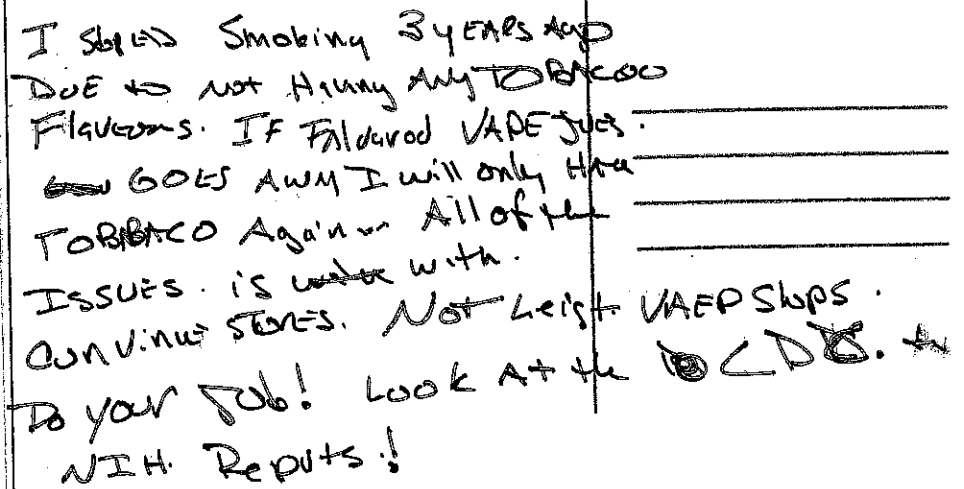 I stoped Smoking 3 yEARs Ago
DUE to Not Having Any TOBACOO
Flaveors. IF Faldavod VAPE Jues.
GOES AWAY I will only Have
TOBBACO Again All of the
ISSUES. is with.
Convinue stores. Not Leigt VAEP Shops.
Do your Job! Look At the CDC.
NIH. Reputs!